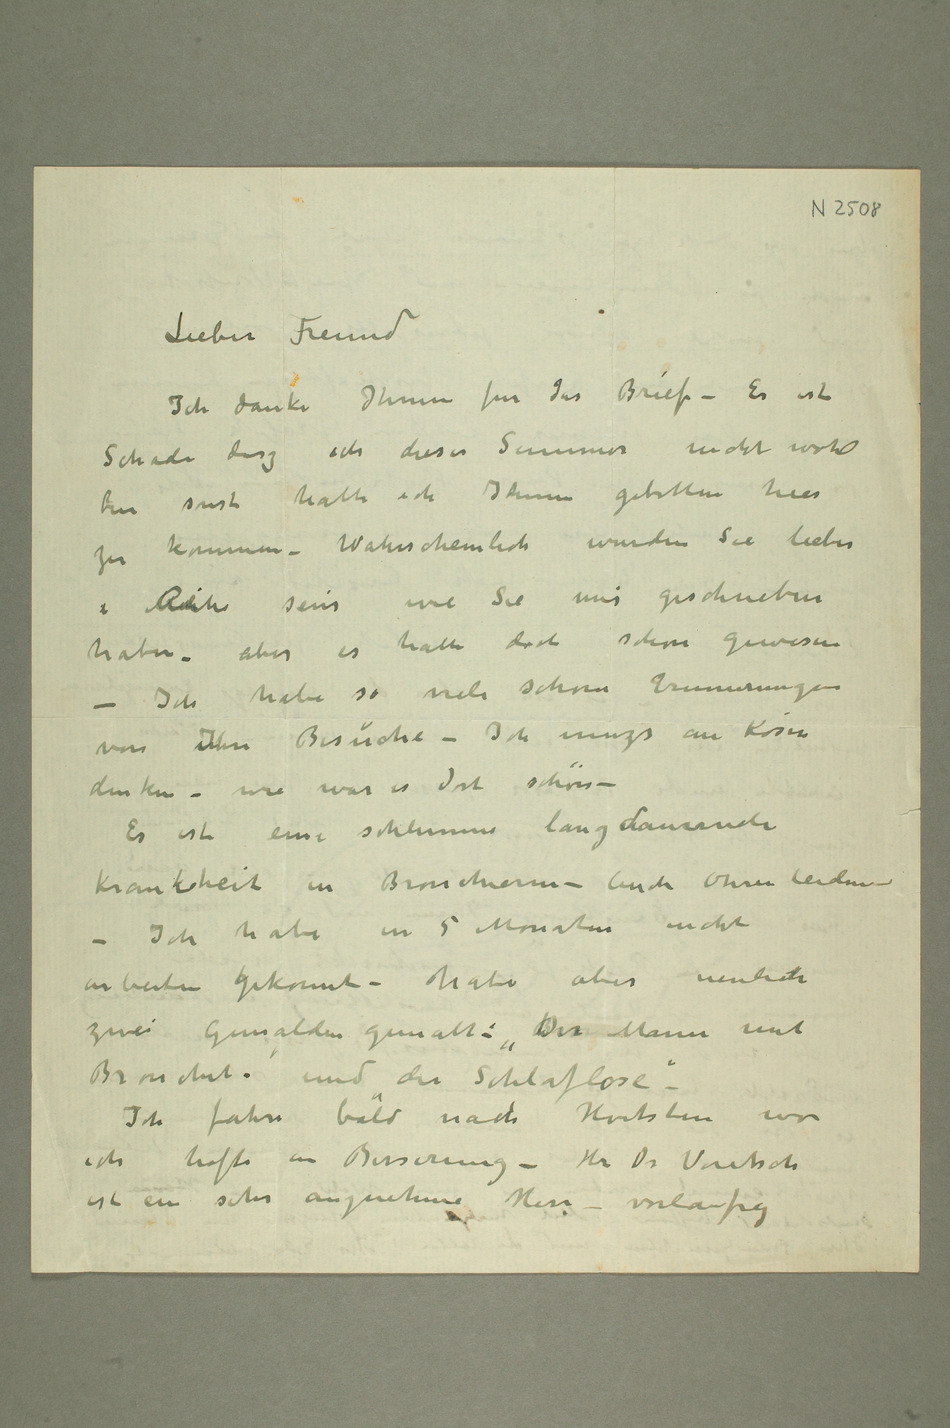 N 2508
Lieber Freund
Ich danke Ihnen fur Ihr Brief – Es ist
Schade dasz ich dieser Sommer nicht wohl
bin sonst hatte ich Ihnen gebetten hier
zu kommen – Wahrscheinlich wurden Sie lieber
i sein wie Sie mir geschrieben
haben – aber es hatte doch schön gewesen
– Ich habe so viele schöne Erinnerungen
von Ihre Besüche – Ich musz an Kösen
denken – wie war es dort schön –
Es ist eine schlimme langdauernde
Krankheit in Bronchierne – Auch Ohrenleiden –
– Ich habe in 5 Monaten nicht
arbeiten gekonnt – habe aber neulich
zwei Gemälden gemalt: „Der Mann mit
Bronchit." und der Schlaflose" –
Ich fahre bald nach Hvitsten wo
ich hoffe an Besserung – Hr Dr Voretsch
ist ein sehr angenehme Herr – vorlaufig